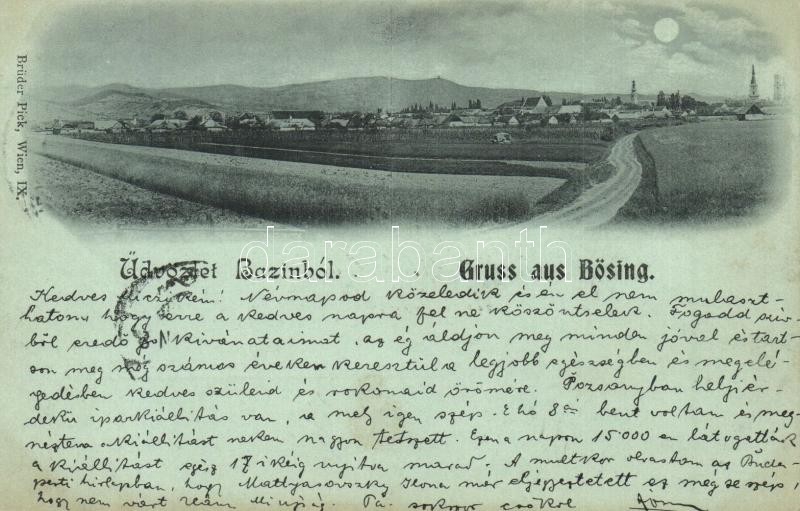 Brüder Pick, Wien, IX.
darabanth.com
Üdvözlet Bazinból.
Gruss aus Bösing.
Kedves Névnapod közeledik és én el nem mulaszt-
hatom hogy erre a kedves napra fel ne köszöntselek. Fogadd szív-
ből eredő jó kivánataimat, az ég áldjon meg minden jóval és tart-
son meg még számos éveken keresztül a legjobb egészségben és megelé-
gedésben kedves szüleid és rokonaid örömére. Pozsonyban helyiér-
dekü iparkiállitás van, a mely igen szép. E hó 8án bent voltam és meg-
nézve a kiállitást nekem nagyon tetszett. Ezen a napon 15000 en látogatták
a kiállitást egész 17 ikéig nyitva marad. A multkor olvastam az Buda-
pesti hirlapban, hogy Mattyasovszky Ilona már eljegyeztetett ez még se szép,
hogy nem várt reám. Mi ujság. Pá. sokszor csókol